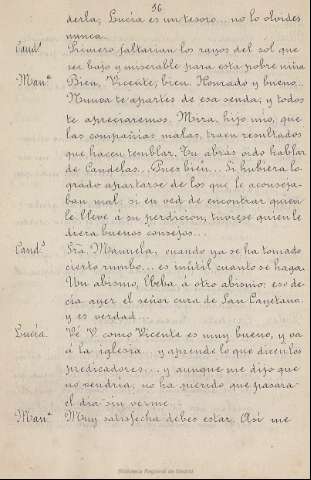 56
derla; Lucía es un tesoro... no lo olvides
nunca.
Cand.s Primero faltarían los rayos del sol que
ser bajo y miserable para esta pobre niña
Man.a Bien, Vicente, bien. Honrado y bueno...
Nunca te apartes de esa senda, y todos
te apreciaremos. Mira, hijo mío, que
las compañias malas, traen resultados
que hacen temblar. Tu abras oido hablar
de Candelas... Pues bien... Si hubiera lo-
grado apartarse de los que le aconseja-
ban mal; si en vez de encontrar quien
le lleve á su perdicion, tuviese quien le
diera buenos consejos...
Cand.s Srª Manuela, cuando ya se ha tomado
cierto rumbo... es inútil cuanto se haga.
Un abismo, lleba á otro abismo: eso de-
cía ayer el señor cura de San Cayetano
y es verdad...
Lucía. Vé V. como Vicente es muy bueno, y va
á la iglesia... y aprende lo que dicen los
predicadores..., y aunque me dijo que
no vendría, no ha querido que pasara
el dia sin verme...
Man.a Muy satisfecha debes estar. Así me
Biblioteca Regional de Madrid